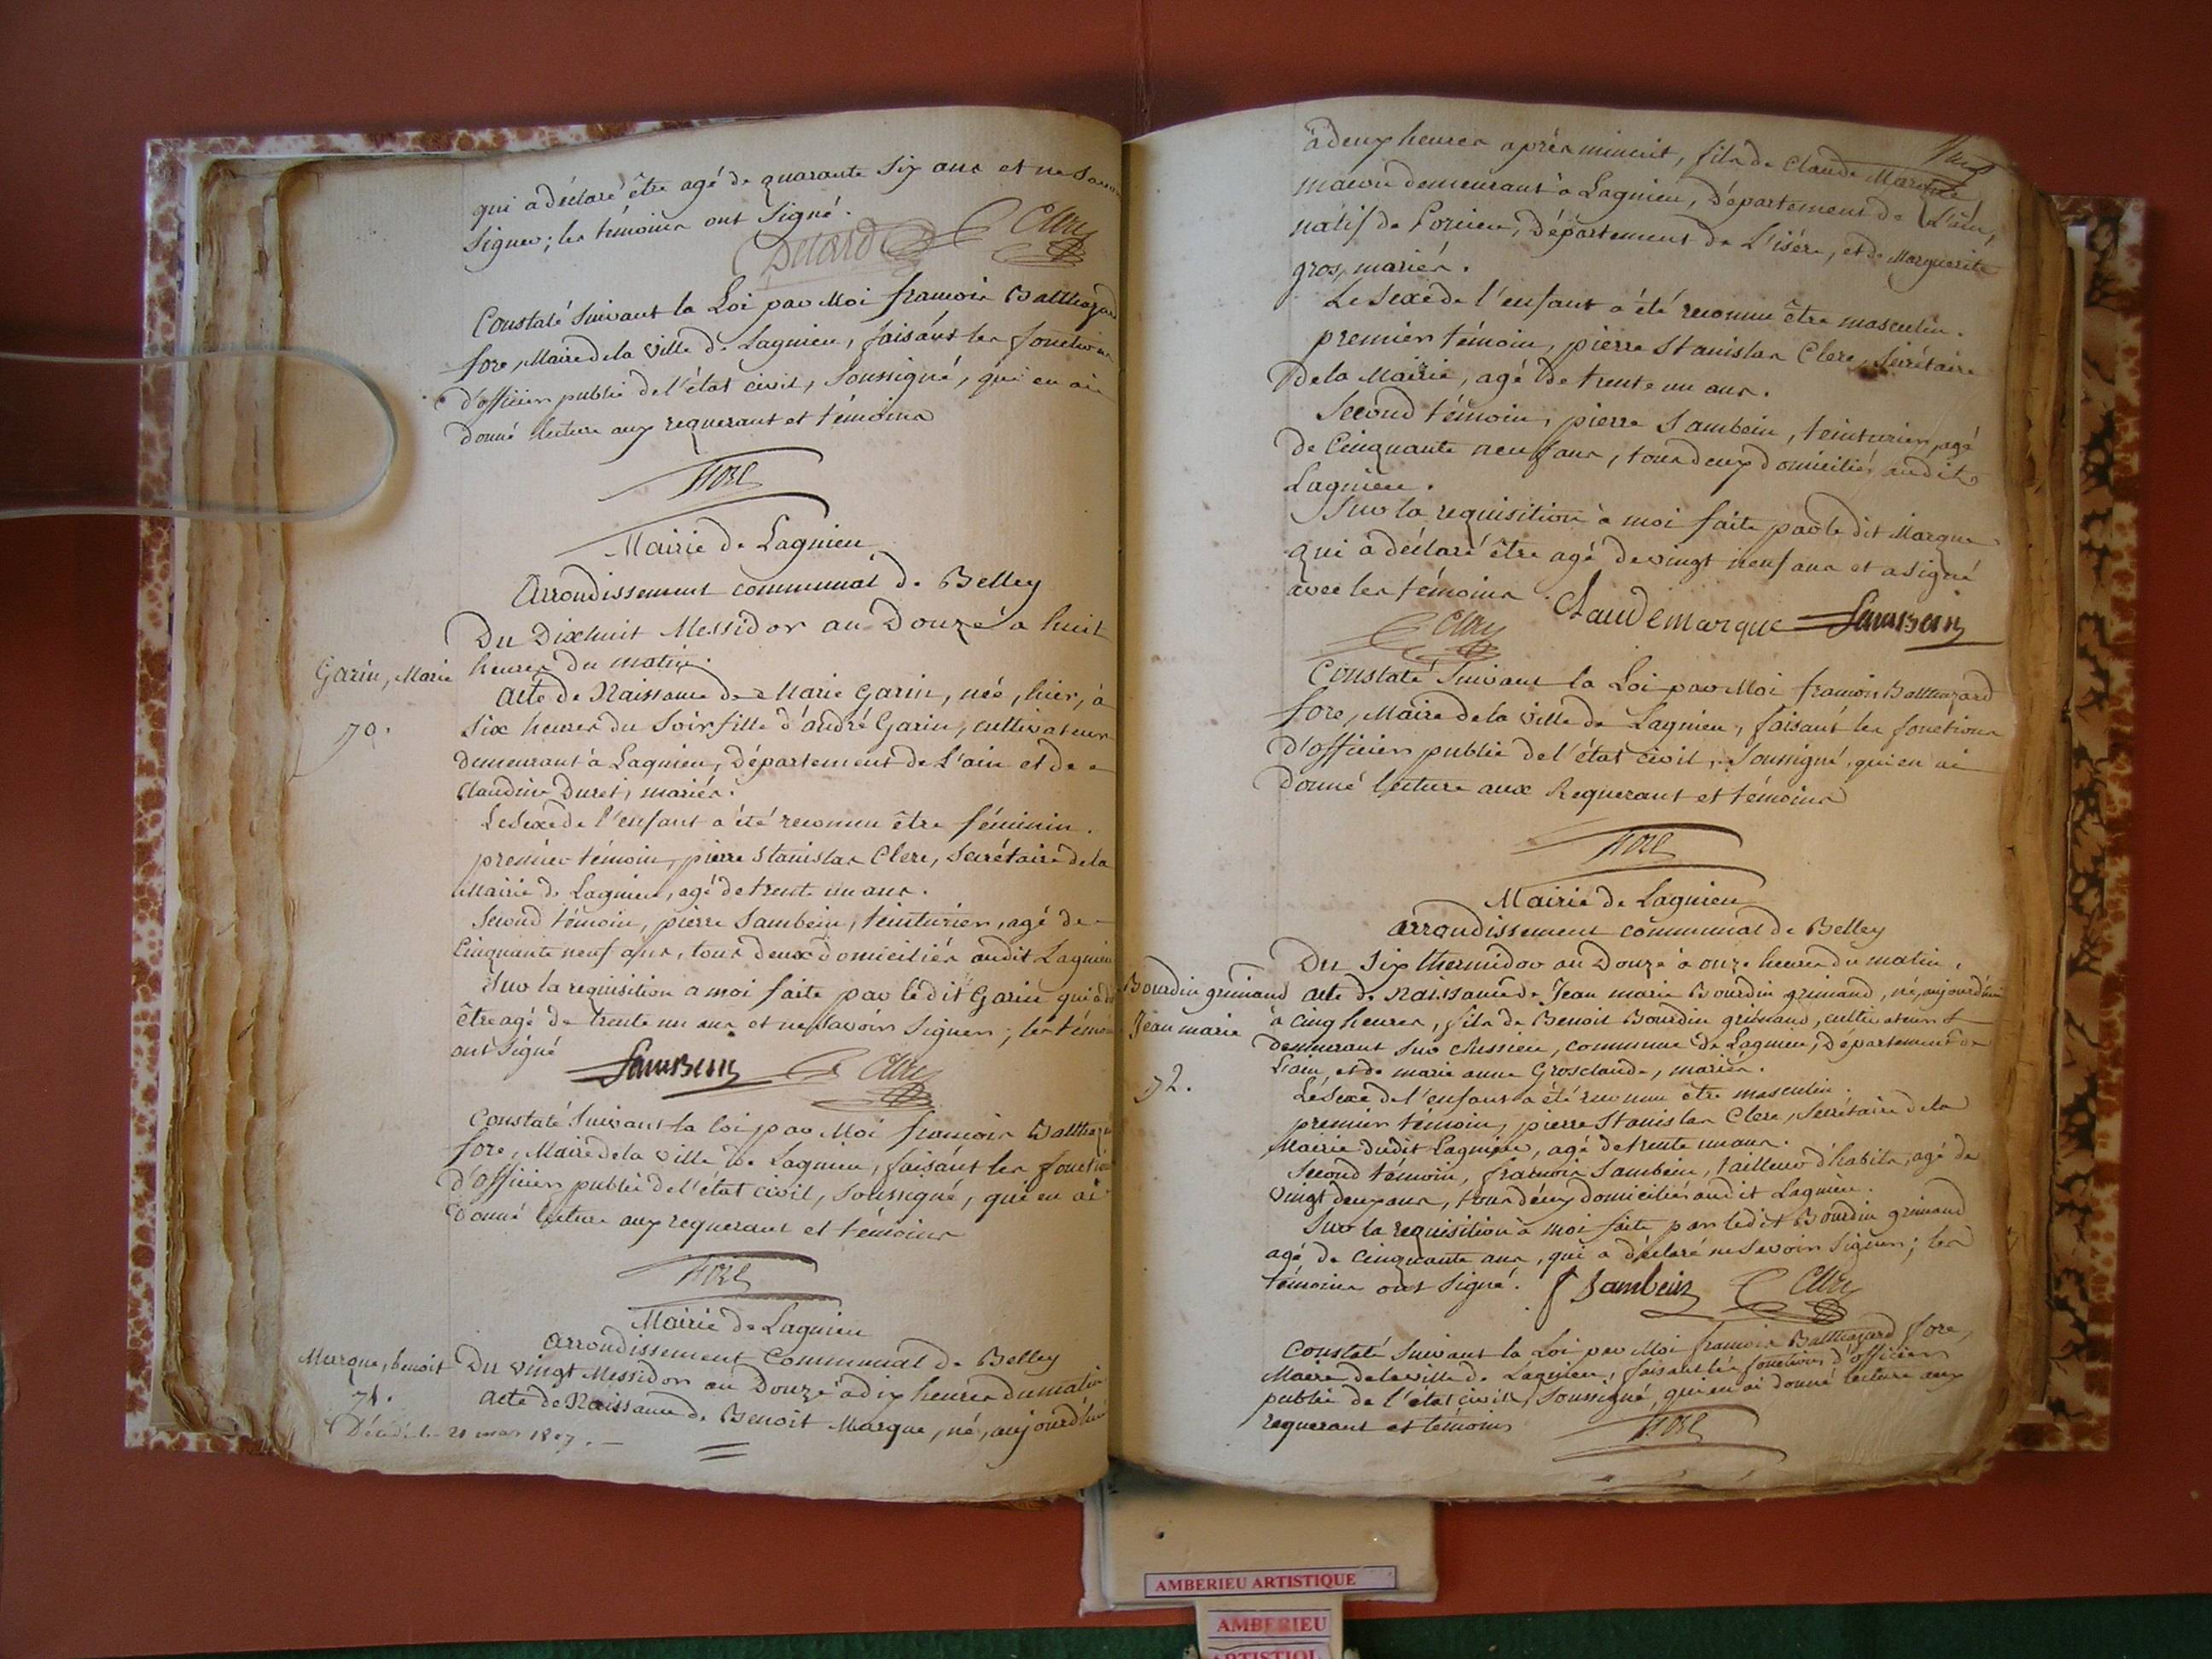 qui a déclaré être agé de quarante six ans et ne savoir
signer; les témoins ont signé.
Constaté suivant la Loi par Moi françois Balthazard
fore, Maire de la Ville de Lagnieu, faisant les fonctions
d'officier public de l'état civil, soussigné, qui en ai
donné lecture aux requerant et témoins
fore
Mairie de Lagnieu
Arrondissement communal de Belley
Du Dixhuit Messidor an Douze à huit
heures du matin.
Garin, Marie
70.
Acte de Naissance de Marie Garin, née, hier, à
six heures du soir fille d'andré Garin, cultivateur
demeurant à Lagnieu, Département de L'ain et de
Claudine Duret, mariés.
Le sexe de l'enfant a été reconnu être féminin.
premier témoin, pierre stanislas Clerc, secrétaire de la
Mairie de Lagnieu, agé de trente un ans.
Second témoin, pierre Sambein, teinturier, agé de
Cinquante neuf ans, tous deux domiciliés audit Lagnieu
Sur la requisition a moi faite par ledit Garin qui a
être agé de trente un ans et ne savoir signer; les témoins
ont signé
SamBein Clerc
Constaté suivant la loi par Moi françois Balthazard
fore, Maire de la Ville de Lagnieu, faisant les fonctions
d'officier public de l'état civil, soussigné, qui en ai
donné lecture aux requerant et témoins
fore
Mairie de Lagnieu
arrondissement Communal de Belley
Marque, benoit
71.
Décédé le 21 mars 1807.
Du vingt Messidor an Douze à dix heures du matin
Acte de Naissance de Benoit Marque, né, aujourd'hui
à deux heures après minuit, fils de Claude Marque
macon demeurant à Lagnieu, Département de L'ain,
natif de Département de L'isère, et de Marguerite
gros, mariés.
Le sexe de l'enfant a été reconnu être masculin.
premier témoin, pierre stanislas Clerc, secrétaire
de la Mairie, agé de trente un ans.
Second témoin, pierre Sambein, teinturier, agé
de Cinquante neuf ans, tous deux domiciliés audit
Lagnieu.
Sur la requisition à moi faite par le dit Marque
qui a déclaré être agé de vingt neuf ans et a signé
avec les témoins.
Clerc Claude marque SamBein
Constaté suivant la Loi par Moi françois Balthazard
fore, Maire de la Ville de Lagnieu, faisant les fonctions
d'officier public de l'état civil, soussigné, qui en ai
donné lecture aux Requerant et témoins
fore
Mairie de Lagnieu
arrondissement communal de Belley
Du six thermidor an Douze à onze heures du matin.
Bourdin grimaud
Jean marie
72.
acte de Naissance de Jean marie Bourdin grimaud, né, aujourd'hui
à cinq heures, fils de Benoit Bourdin grimaud, cultivateur
demeurant sur commune de Lagnieu, Département de
L'ain, et de marie anne Grosclaude, mariés.
Le sexe de l'enfant a été reconnu être masculin.
premier témoin, pierre Stanislas Clerc, secrétaire de la
Mairie dudit Lagnieu, agé de trente un ans.
Second témoin, françois Sambein, tailleur d'habits, agé de
vingt deux ans, tous deux domiciliés audit Lagnieu.
Sur la requisition à moi faite par ledit Bourdin grimaud
agé de cinquante ans, qui a déclaré ne savoir signer; les
témoins ont signé. f Sambein Clerc
Constaté suivant la Loi par Moi françois Balthazard fore,
Maire de la ville de Lagnieu, faisant les fonctions d'officier
public de l'état civil, soussigné, qui en ai donné lecture aux
requerant et témoins
fore
AMBERIEU ARTISTIQUE
AMBERIEU